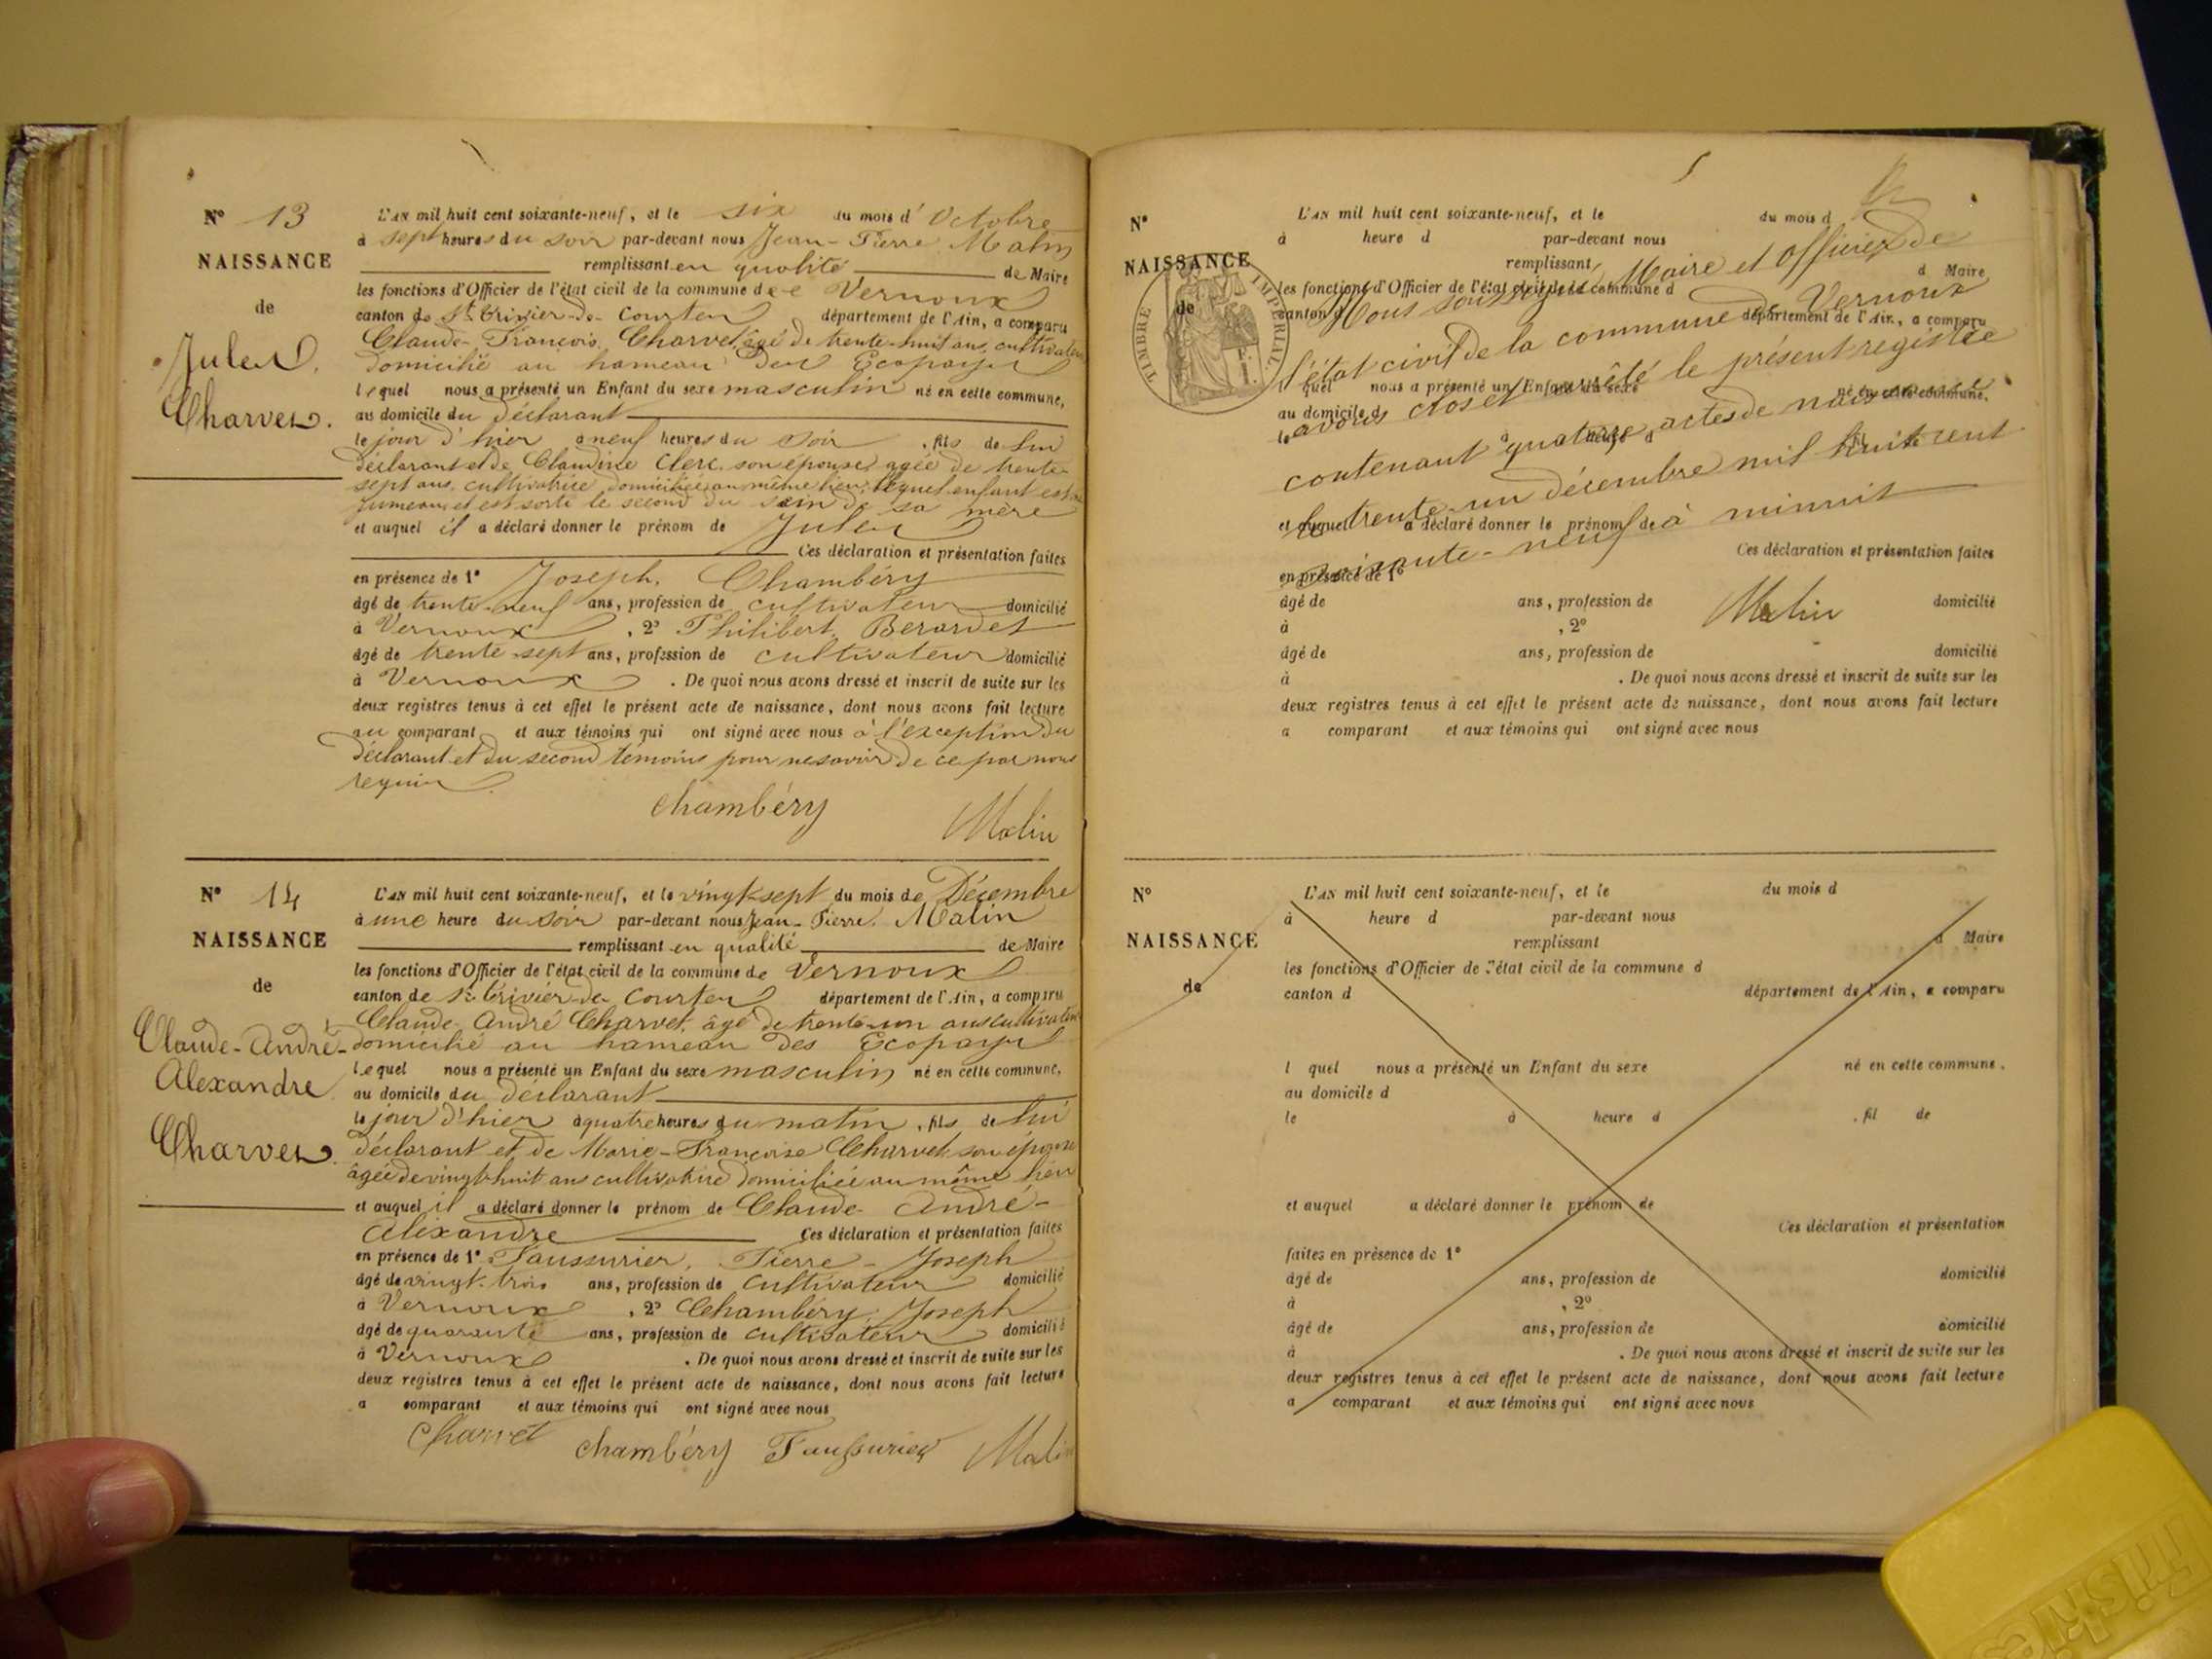 N° 13
NAISSANCE
de
Jules
Charvet.
L'AN mil huit cent soixante-neuf, et le six du mois d'Octobre
à sept heures du soir par-devant nous Jean-Pierre Malin
remplissant en qualité de Maire
les fonctions d'Officier de l'état civil de la commune de Vernoux
canton de St Trivier-de-Courtes département de l'Ain, a comparu
Claude-François Charvet, âgé de trente-huit ans, cultivateur
domicilié au hameau des Ecopayes
lequel nous a présenté un Enfant du sexe masculin né en cette commune,
au domicile du déclarant
le jour d'hier à neuf heures du soir, fils de lui
déclarant et de Claudine Clerc, son épouse, agée de trente
sept ans, cultivatrice domiciliée au même lieu, lequel enfant est
jumeau, et est sorti le second du sein de sa mère
et auquel il a déclaré donner le prénom de Jules
Ces déclaration et présentation faites
en présence de 1° Joseph, Chambéry
âgé de trente-neuf ans, profession de cultivateur domicilié
à Vernoux, 2° Philibert, Berardet
âgé de trente-sept ans, profession de cultivateur domicilié
à Vernoux. De quoi nous avons dressé et inscrit de suite sur les
deux registres tenus à cet effet le présent acte de naissance, dont nous avons fait lecture
au comparant et aux témoins qui ont signé avec nous à l'exception du
déclarant et du second témoins pour ne savoir de ce par nous
requis
Chambéry
Malin
N° 14
NAISSANCE
de
Claude-André-
Alexandre
Charvet
L'AN mil huit cent soixante-neuf, et le vingt-sept du mois de Décembre
à une heure du soir par-devant nous Jean-Pierre Malin
remplissant en qualité de Maire
les fonctions d'Officier de l'état civil de la commune de Vernoux
canton de St Trivier-de-Courtes département de l'Ain, a comparu
Claude-André Charvet, âgé de trente-un ans cultivateur
domicilié au hameau des Ecopayes
lequel nous a présenté un Enfant du sexe masculin né en cette commune,
au domicile du déclarant
le jour d'hier à quatre heures du matin, fils de lui
déclarant et de Marie-Françoise Charvet, son épouse
âgée de vingt-huit ans cultivatrice domiciliée au même lieu
et auquel il a déclaré donner le prénom de Claude-André-
Alexandre Ces déclaration et présentation faites
en présence de 1° Faussurier, Pierre-Joseph
âgé de vingt-trois ans, profession de cultivateur domicilié
à Vernoux, 2° Chambéry, Joseph
âgé de quarante ans, profession de cultivateur domicilié
à Vernoux. De quoi nous avons dressé et inscrit de suite sur les
deux registres tenus à cet effet le présent acte de naissance, dont nous avons fait lecture
a comparant et aux témoins qui ont signé avec nous
Charvet Chambéry Faussurier Malin
N°
NAISSANCE
de
TIMBRE IMPÉRIAL
L'AN mil huit cent soixante-neuf, et le du mois d
à heure d par-devant nous
remplissant
d Maire
les fonctions d'Officier de l'état civil de la commune d
canton d département de l'Ain, a comparu
Nous soussigné, Maire et Officier de
l'état civil de la commune de Vernoux
avons clos et arrêté le présent registre
contenant quatorze actes de naissance
le trente-un décembre mil huit cent
soixante-neuf à minuit
l quel nous a présenté un Enfant du sexe né en cette commune,
au domicile d
le à heure d fil
et auquel a déclaré donner le prénom de
Ces déclaration et présentation faites
en présence de 1°
âgé de ans, profession de domicilié
Malin
à , 2°
âgé de ans, profession de domicilié
à . De quoi nous avons dressé et inscrit de suite sur les
deux registres tenus à cet effet le présent acte de naissance, dont nous avons fait lecture
a comparant et aux témoins qui ont signé avec nous
N°
NAISSANCE
de
L'AN mil huit cent soixante-neuf, et le du mois d
à heure d par-devant nous
remplissant
d Maire
les fonctions d'Officier de l'état civil de la commune d
canton d département de l'Ain, a comparu
l quel nous a présenté un Enfant du sexe né en cette commune,
au domicile d
le à heure d , fil de
et auquel a déclaré donner le prénom de
Ces déclaration et présentation
faites en présence de 1°
âgé de ans, profession de domicilié
à , 2°
âgé de ans, profession de domicilié
à . De quoi nous avons dressé et inscrit de suite sur les
deux registres tenus à cet effet le présent acte de naissance, dont nous avons fait lecture
a comparant et aux témoins qui ont signé avec nous
Friskies